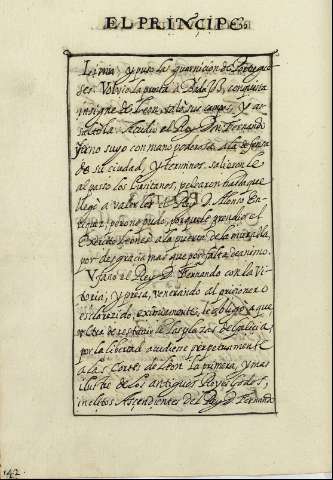 EL PRINCIPE
Limia y puso la guarnicion de Portugue
ses. Volvio la punta a Badajoz, conquista
insigne de Leon, taló sus campos, y as
saltóla. Acudio el Rey Don Fernando
yerno suyo con mano poderosa, a la defensa
de su ciudad, y terminos. salieronle
al paso los Lusitanos, pelearon hasta que
llegó a valer los el Rey D. Alonso En
riquez; pero no pudo, porque le prendio el
Exercito Leonés a la puerta de la muralla,
por desgracia mas que por falta de animo.
Vfano el Rey D. Fernando con la Vi
toria, y presa, venerando al prisionero
esclarecido, eximiamente, le obligó a que
en las plazas de Galicia,
por la libertad acudiese perpetuamente
a las Cortes de Leon la primera, y mas
ilustre de los antiguos Reyes Godos,
inclitos Ascendientes del Rey D. Fernando
142